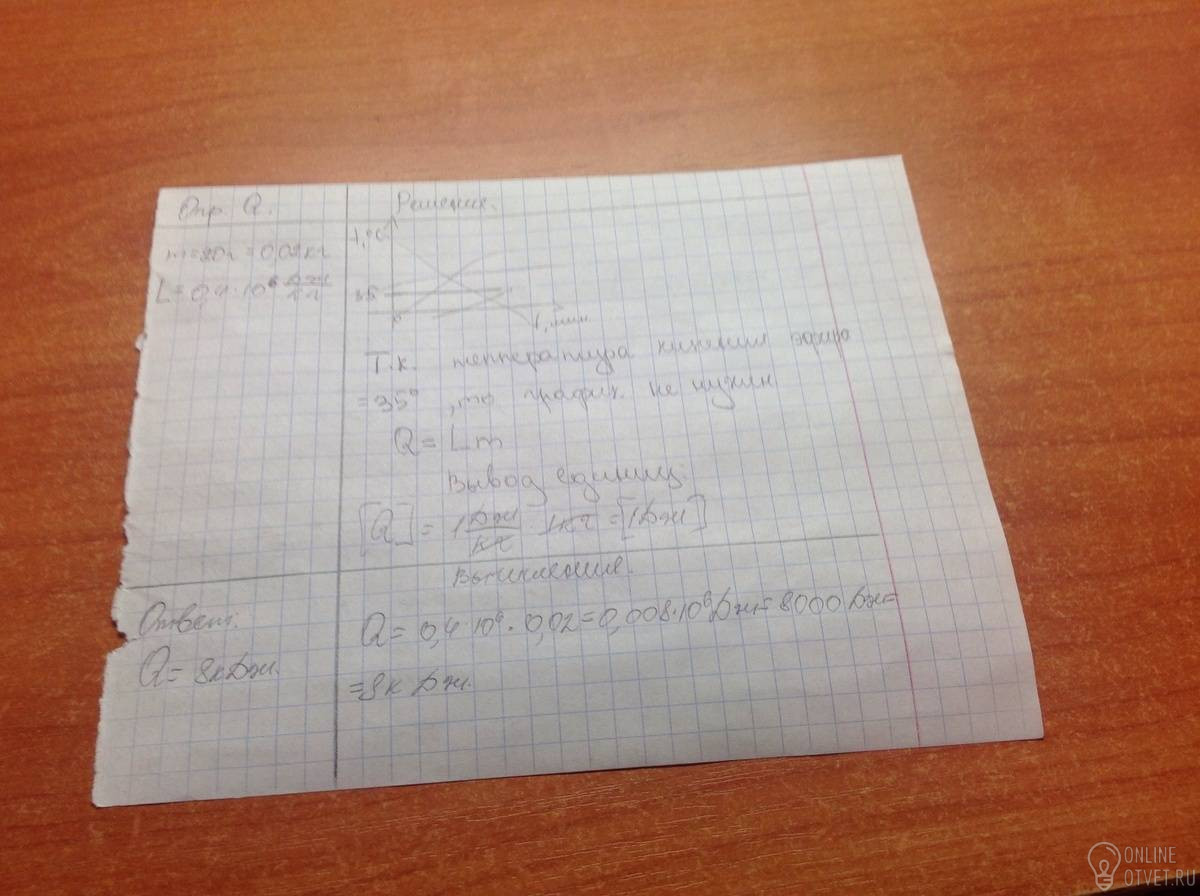 Опр. Q.
m=20г=0,02кг
L=0,4·10⁶ Дж/кг
Решение.
t,°C
35
0
t, мин
Т.к. температура кипения эфира
=35°, то график не нужен
Q=Lm
Вывод единиц:
[Q]=1 Дж/кг 1кг=[1Дж]
Вычисления.
Q= 0,4·10⁶·0,02=0,008·10⁶Дж=8000Дж=
=8кДж.
Ответ:
Q=8кДж.
ONLINE
OTVET.RU